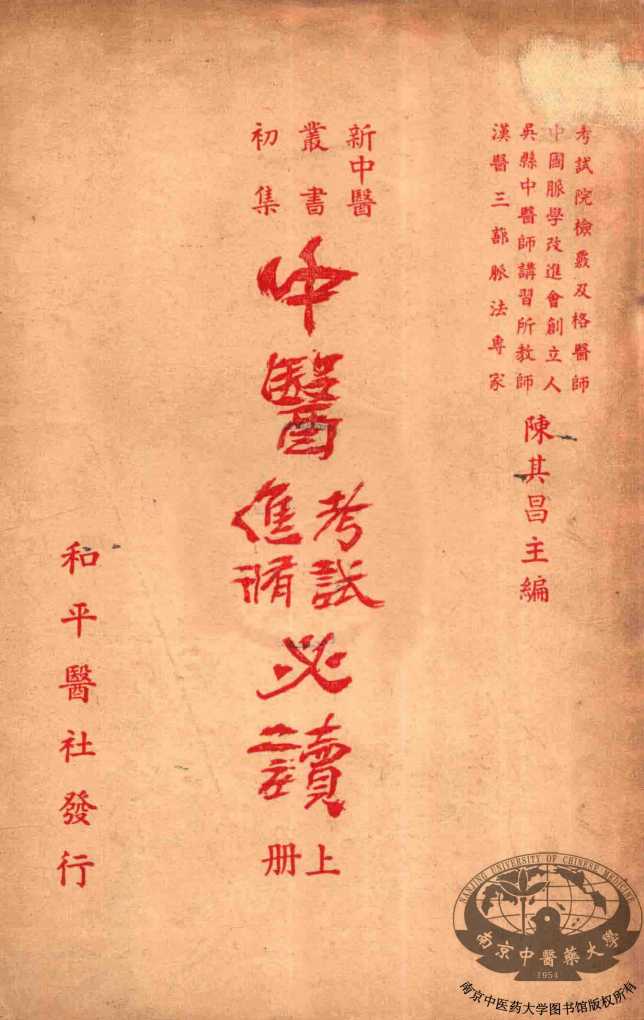 考試院檢覈及格醫師
中國脈學改進會創立人
吳縣中醫師講習所教師
漢醫三部脈法專家
陳其昌主編
新中醫
叢書
初集
中醫
考試
進修
必讀
上册
和平醫社發行
NANJING UNIVERSITY OF CHINESE MEDICINE
南京中醫藥大學
1954
南京中医药大学图书馆版权所有